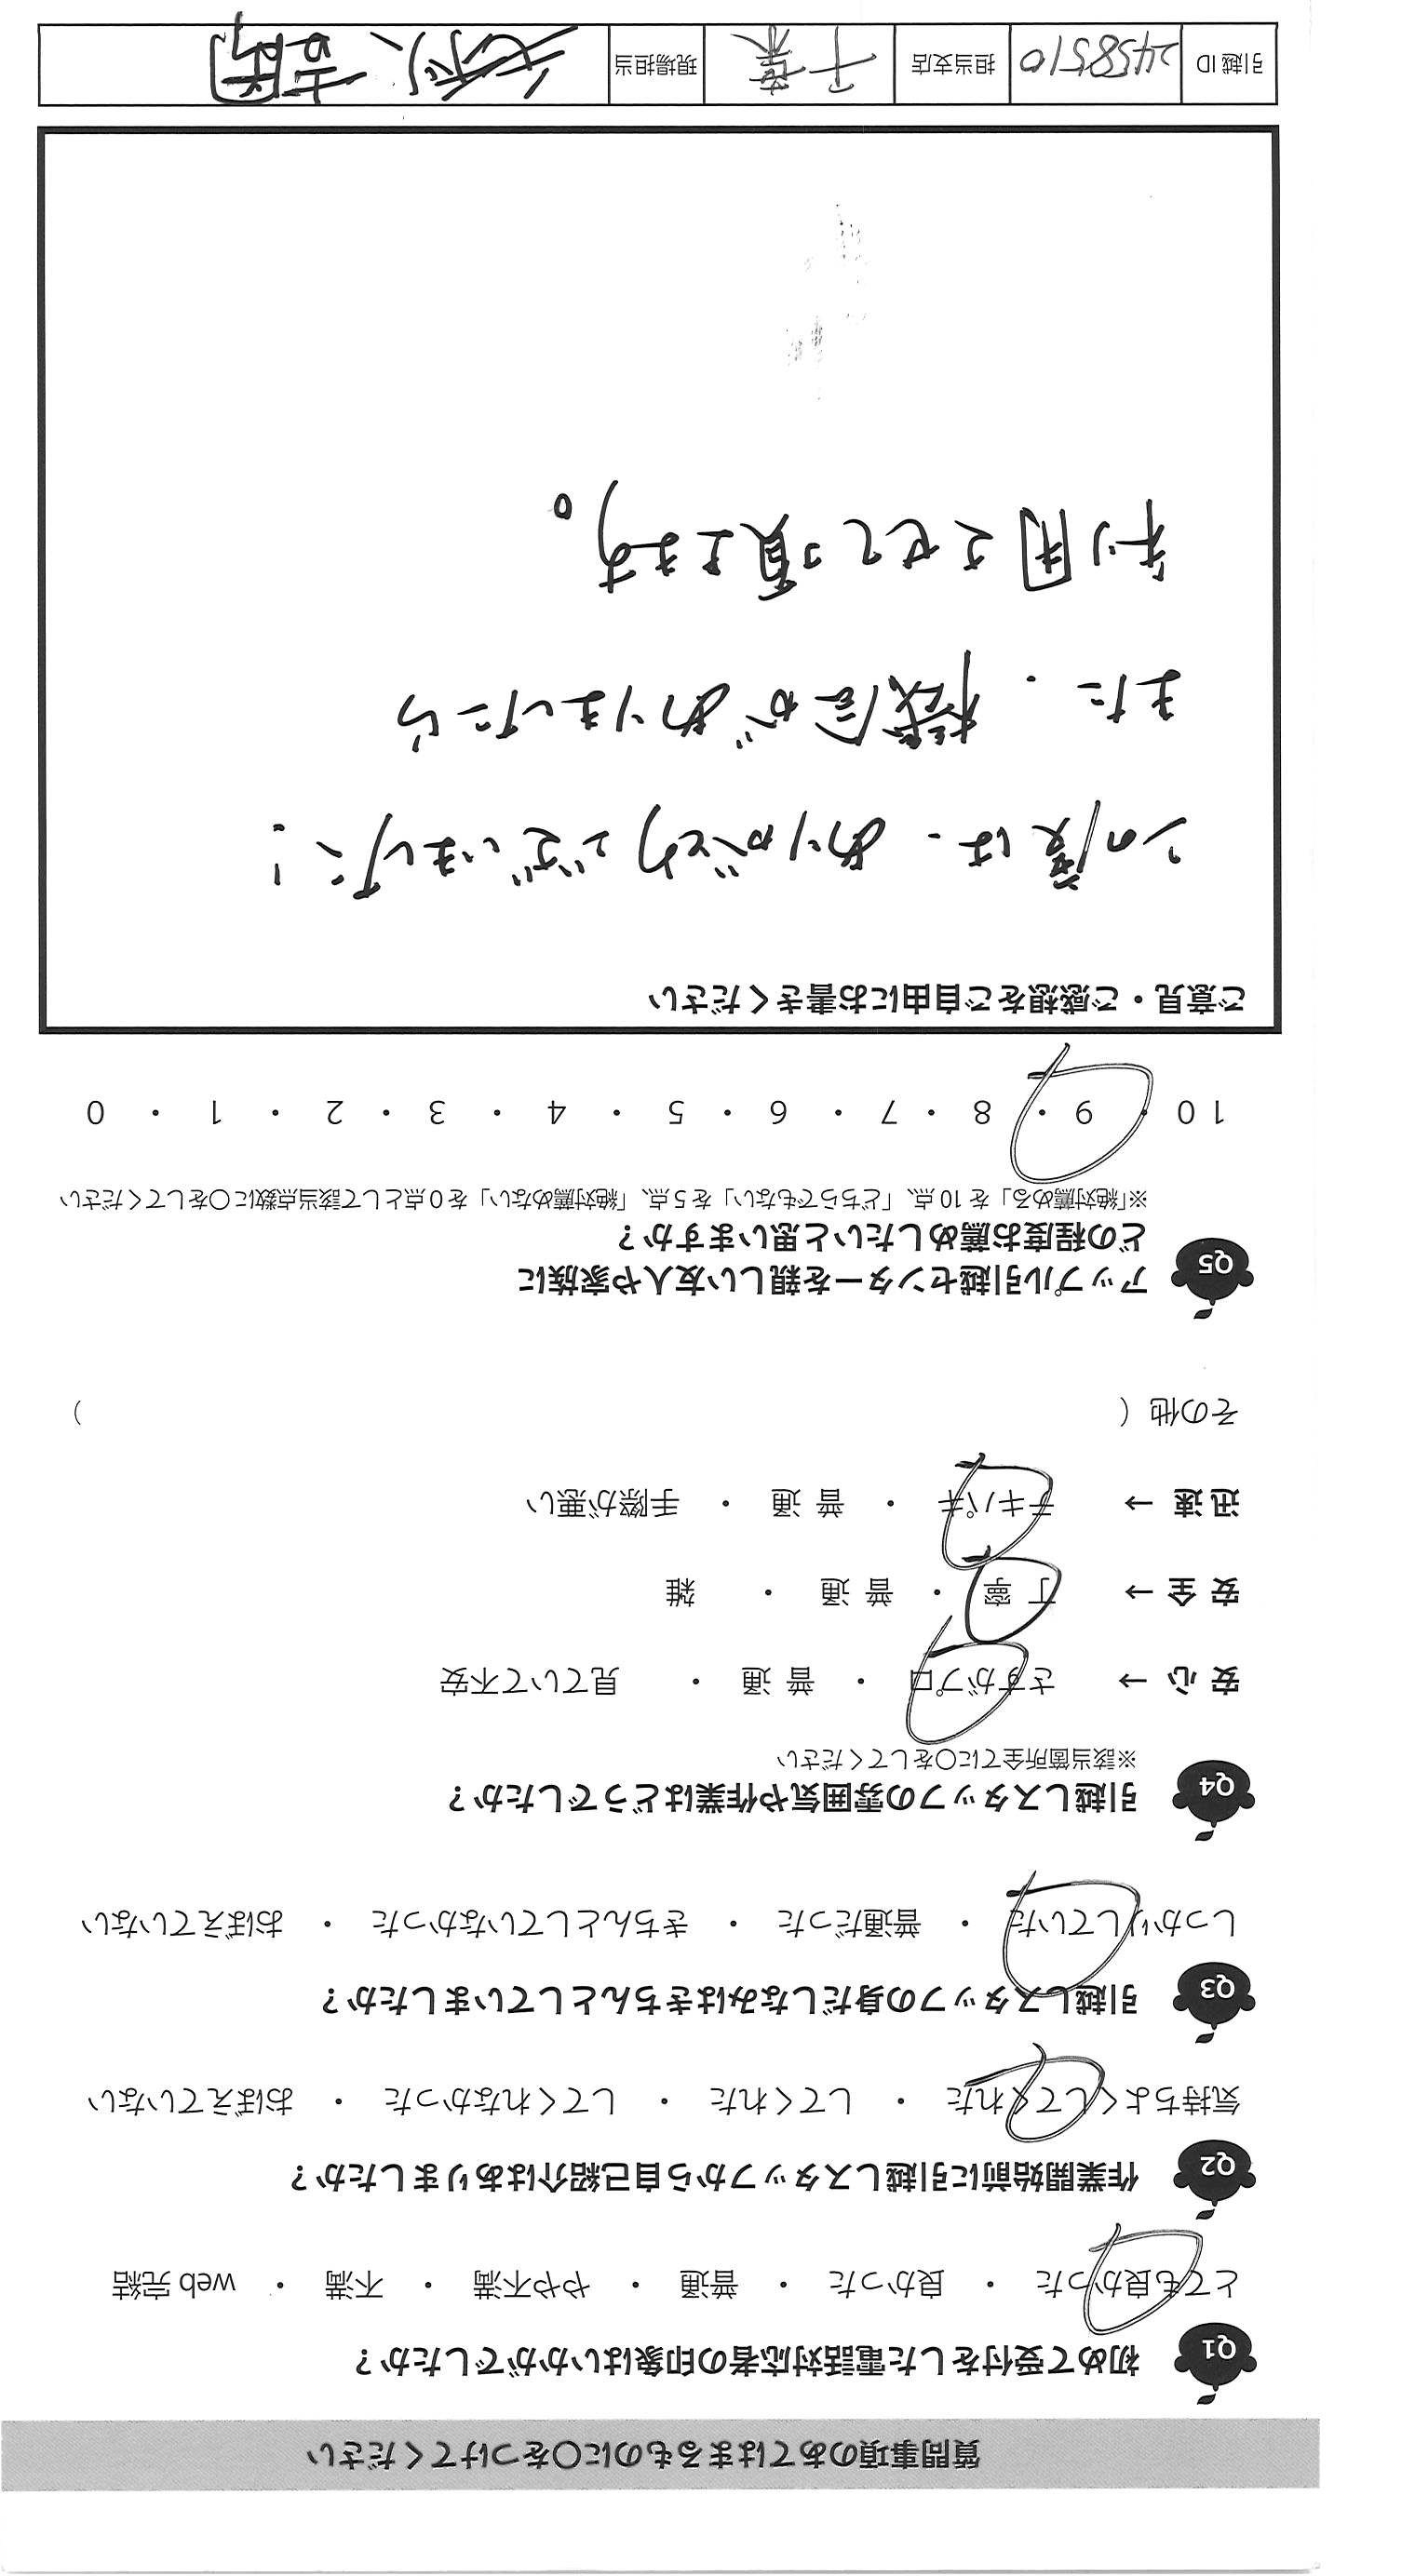 質問事項のあてはまるものに○をつけてください
Q1 初めて受付をした電話対応者の印象はいかがでしたか？
とても良かった ・ 良かった ・ 普通 ・ やや不満 ・ 不満 ・ web 完結
Q2 作業開始前に引越しスタッフから自己紹介はありましたか？
気持ちよくしてくれた ・ してくれた ・ してくれなかった ・ おぼえていない
Q3 引越しスタッフの身だしなみはきちんとしていましたか？
しっかりしていた ・ 普通だった ・ きちんとしていなかった ・ おぼえていない
Q4 引越しスタッフの雰囲気や作業はどうでしたか？
※該当箇所全てに○をしてください
安 心 → さすがプロ ・ 普 通 ・ 見ていて不安
安 全 → 丁 寧 ・ 普 通 ・ 雑
迅 速 → テキパキ ・ 普 通 ・ 手際が悪い
その他（ ）
Q5 アップル引越センターを親しい友人や家族に
どの程度お薦めしたいと思いますか？
※「絶対薦める」を 10 点、「どちらでもない」を 5 点、「絶対薦めない」を 0 点として該当点数に○をしてください
10 ・ 9 ・ 8 ・ 7 ・ 6 ・ 5 ・ 4 ・ 3 ・ 2 ・ 1 ・ 0
ご意見・ご感想をご自由にお書きください
この度は、ありがとうございました！
また、機会がありましたら
利用させて頂きます。
引越 ID 2458510 担当支店 千葉 現場担当